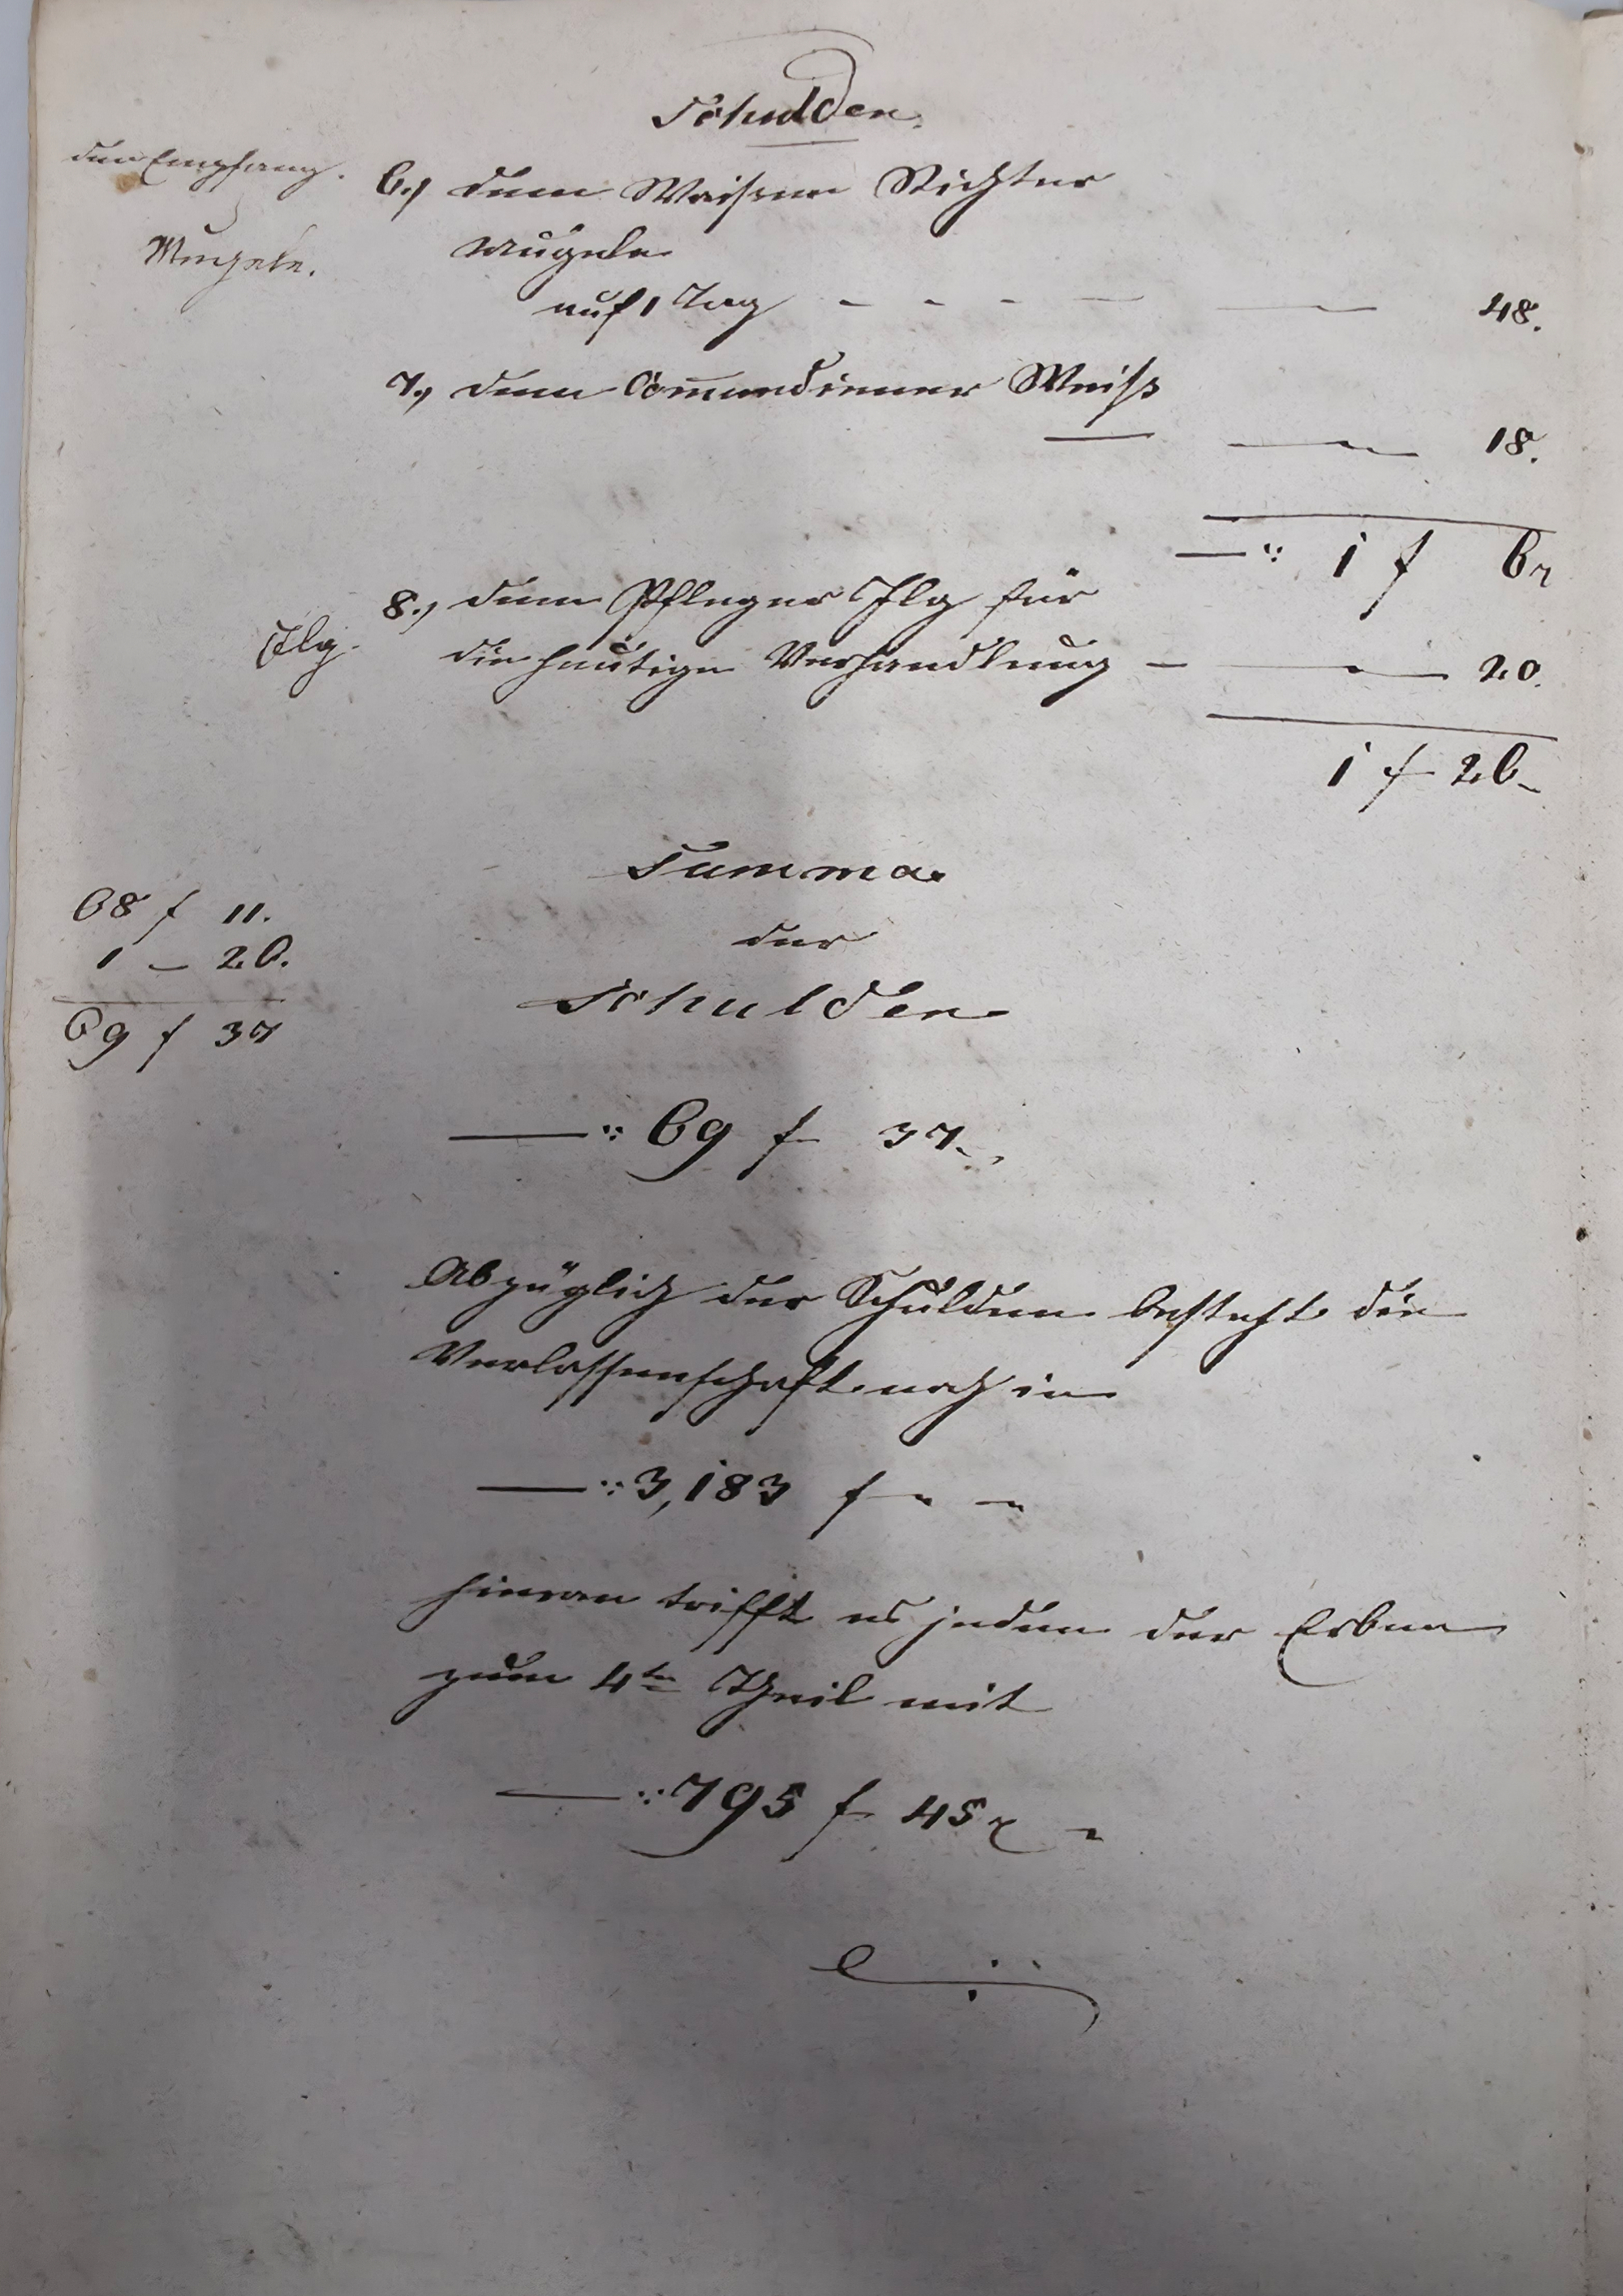 Schulden.
den Empfang.
6.) dem Waisen Richter
Mugele.
Mugele
auf 1 Tag - - - - — 48.
7.) dem Com̄undiener Weiß
— — 18.
—:. 1 f 6 x
8.) dem Pfleger Ilg für
Ilg.
die heutige Verhandlung — — 20.
1 f 26
Summa
der
Schulden
68 f 11.
1 — 26.
69 f 37
—:. 69 f 37.
Abzüglich der Schulden besteht die
Verlassenschaft noch in
—:. 3,183 f - -
hievon trifft es jeden der Erben
zum 4ten Theil mit
—:. 795 f 45 x